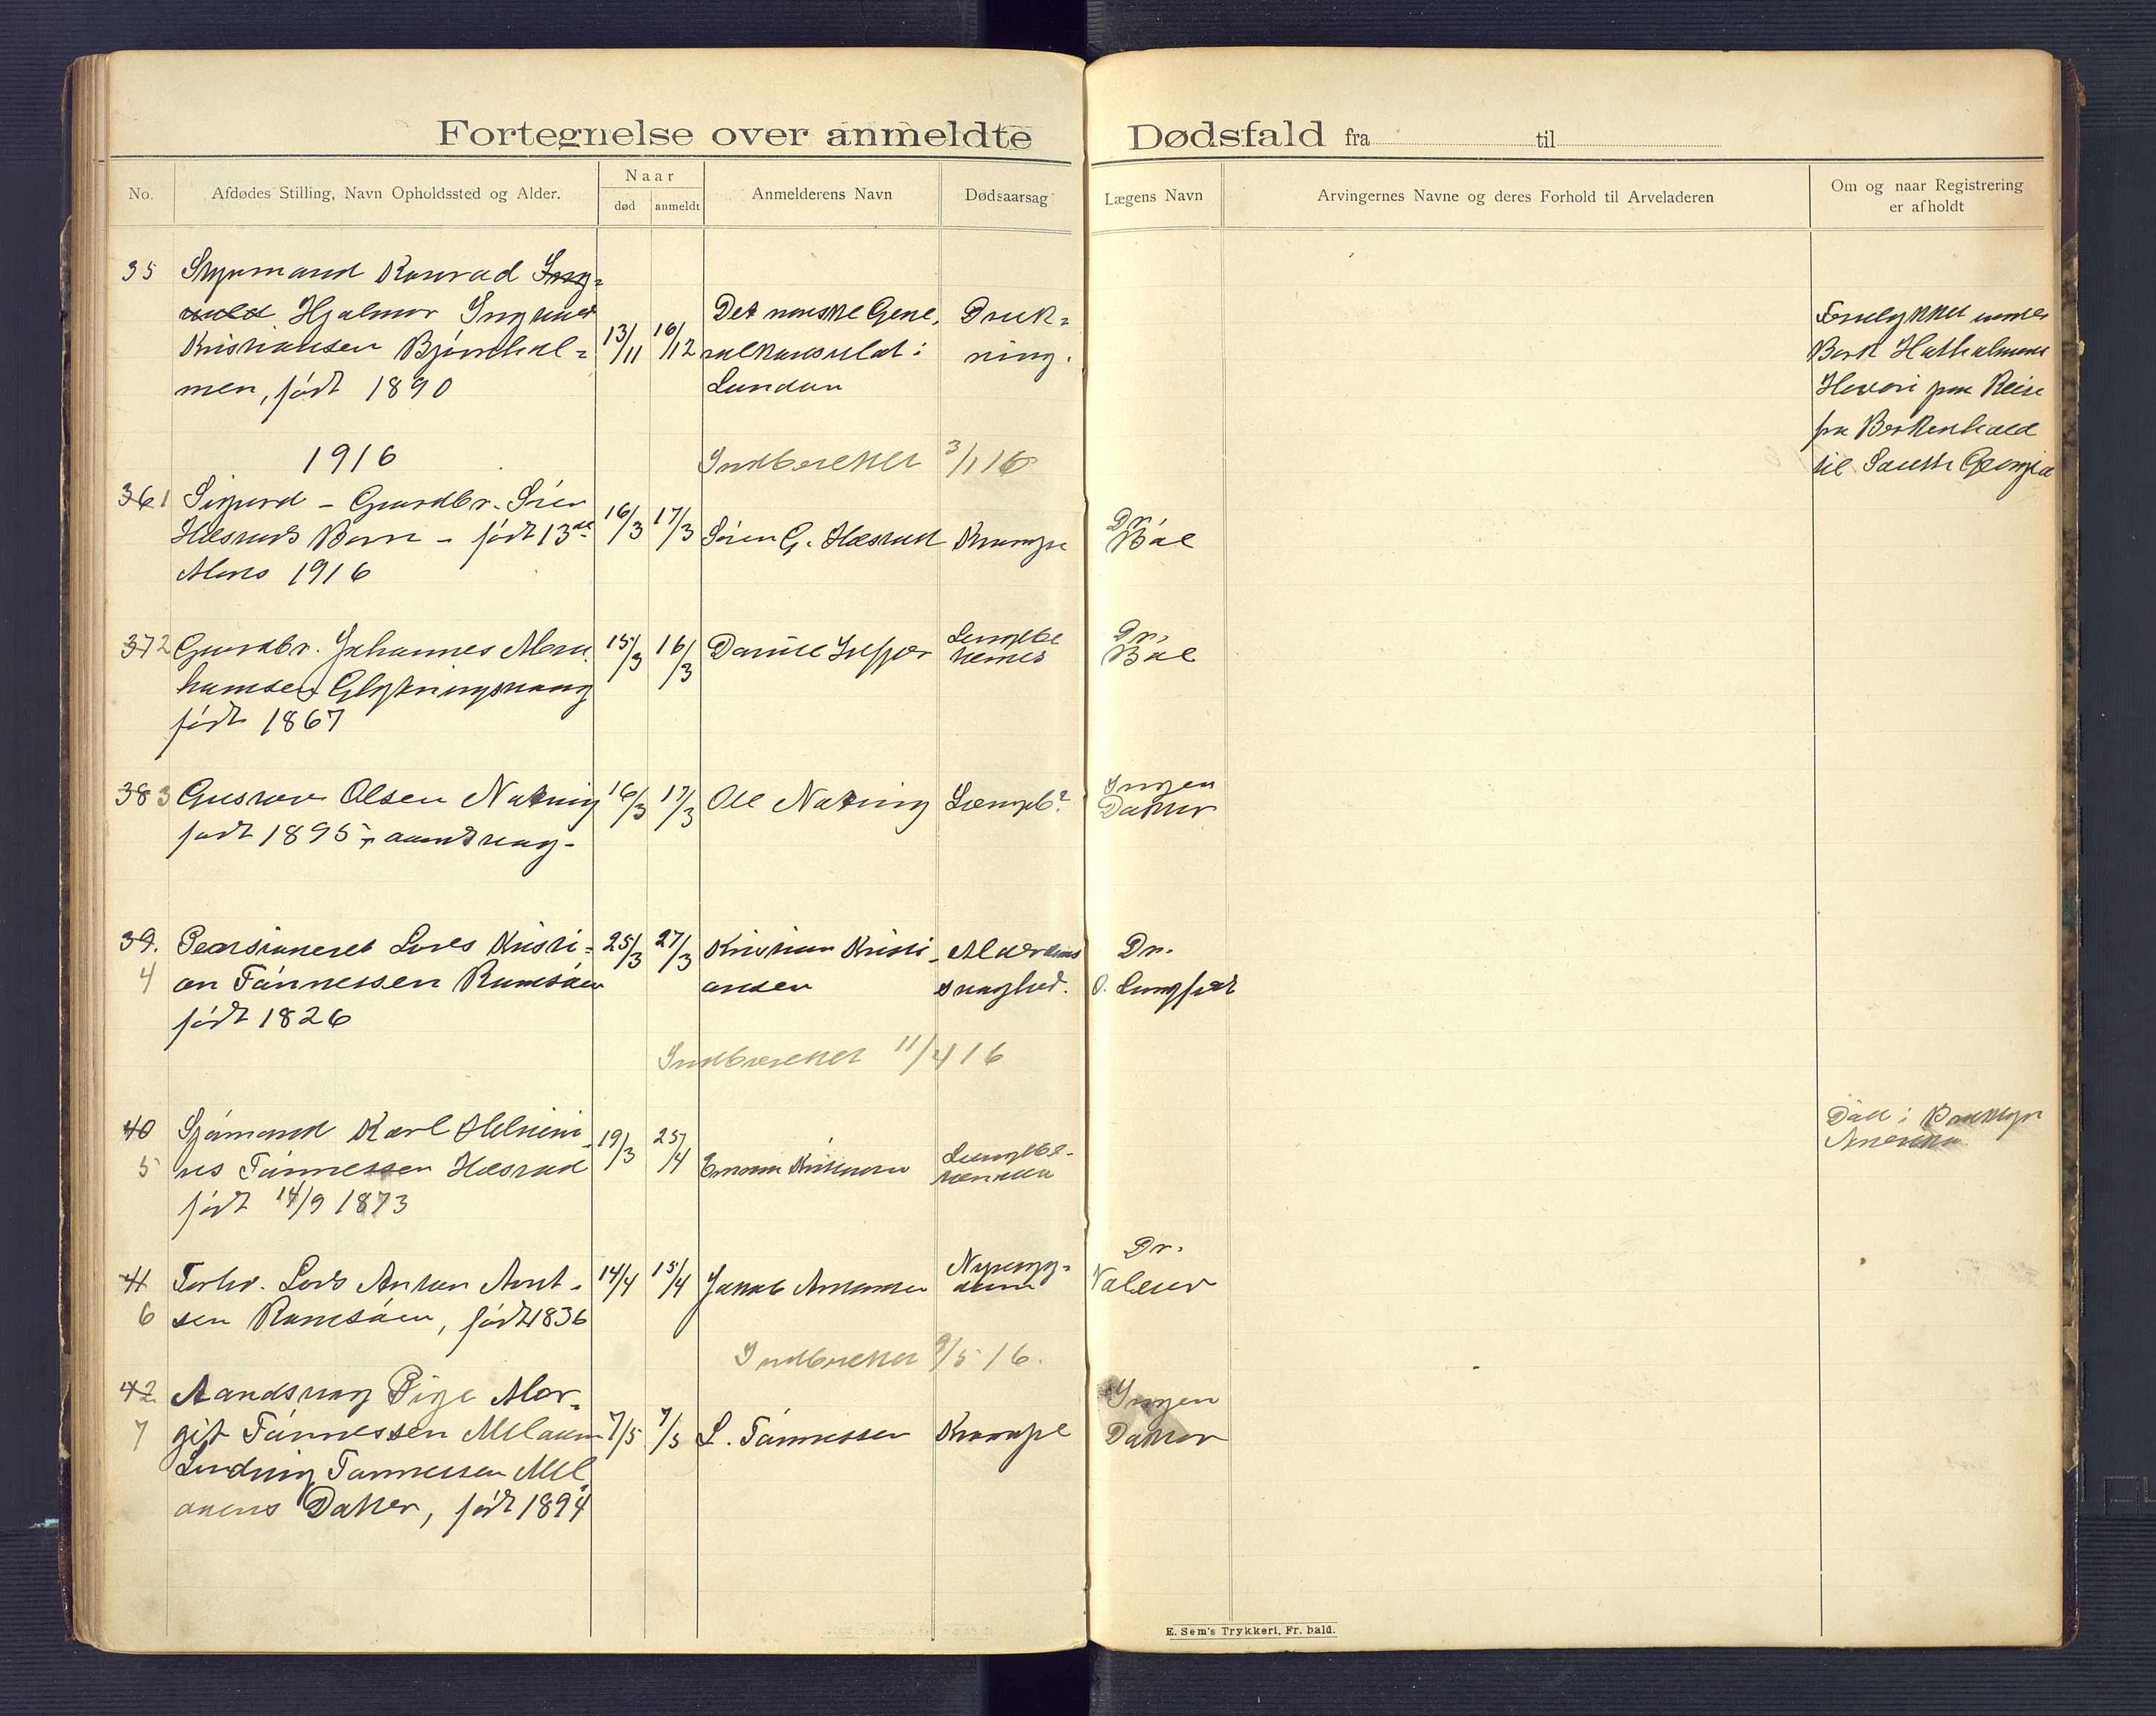 Fortegnelse over anmeldte Dødsfald fra til
No.
Afdødes Stilling, Navn Opholdssted og Alder.
Naar
død
anmeldt
Anmelderens Navn
Dødsaarsag
Lægens Navn
Arvingernes Navne og deres Forhold til Arveladeren
Om og naar Registrering
er afholdt
35
Styrmand Konrad
Hjalmar Ingvald
Kristiansen Bjørnhol=
men, født 1890
13/11
16/12
Det norske Gene,
ralkonsulat i
London
Druk=
ning.
Forulykket under
Bark
paa Reise
fra Berkenhead
til South Georgia
1916
Indberettet 3/1 16
36 1
Sigurd - Gaardbr. Søren
Hæsnæs Barn - født 13de
Mars 1916
16/3
17/3
Søren G.
Krampe
Dr.
Bøe
37 2
Gaardbr. Johannes Abra
hamsen
født 1867
15/3
16/3
Daniel
Lungebe
Dr.
Bøe
38 3
Gustav Olsen Natvig
født 1895 - aandsvag -
16/3
17/3
Ole Natvig
Lungeb?
Ingen
Doktor
39.
4
Pensioneret Lods Kristi=
an Tønnessen Ramsøen
født 1826
25/3
27/3
Kristian Kristi-
ansen
Alderdoms
svaghed.
Dr.
O.
Indberettet 11/4 16
40
5
Sjømand Karl
us Tønnessen
født 14/9 1873
19/3
25/4
Lungebe-
tændelse
Død i Brooklyn
Amerika
41
6
Forhv. Lods Anton Arnt-
sen Ramsøen, født 1836
14/4
15/4
Jakob
Nyresyg=
dom
Dr.
Valeur
Indberettet 9/5 16.
42
7
Aandsvag Pige Mar=
git Tønnessen
Ludvig Tønnessen
Datter, født 1894
7/5
7/5
L. Tønnessen
Krampe
Ingen
Doktor
E. Sem's Trykkeri, Fr. hald.